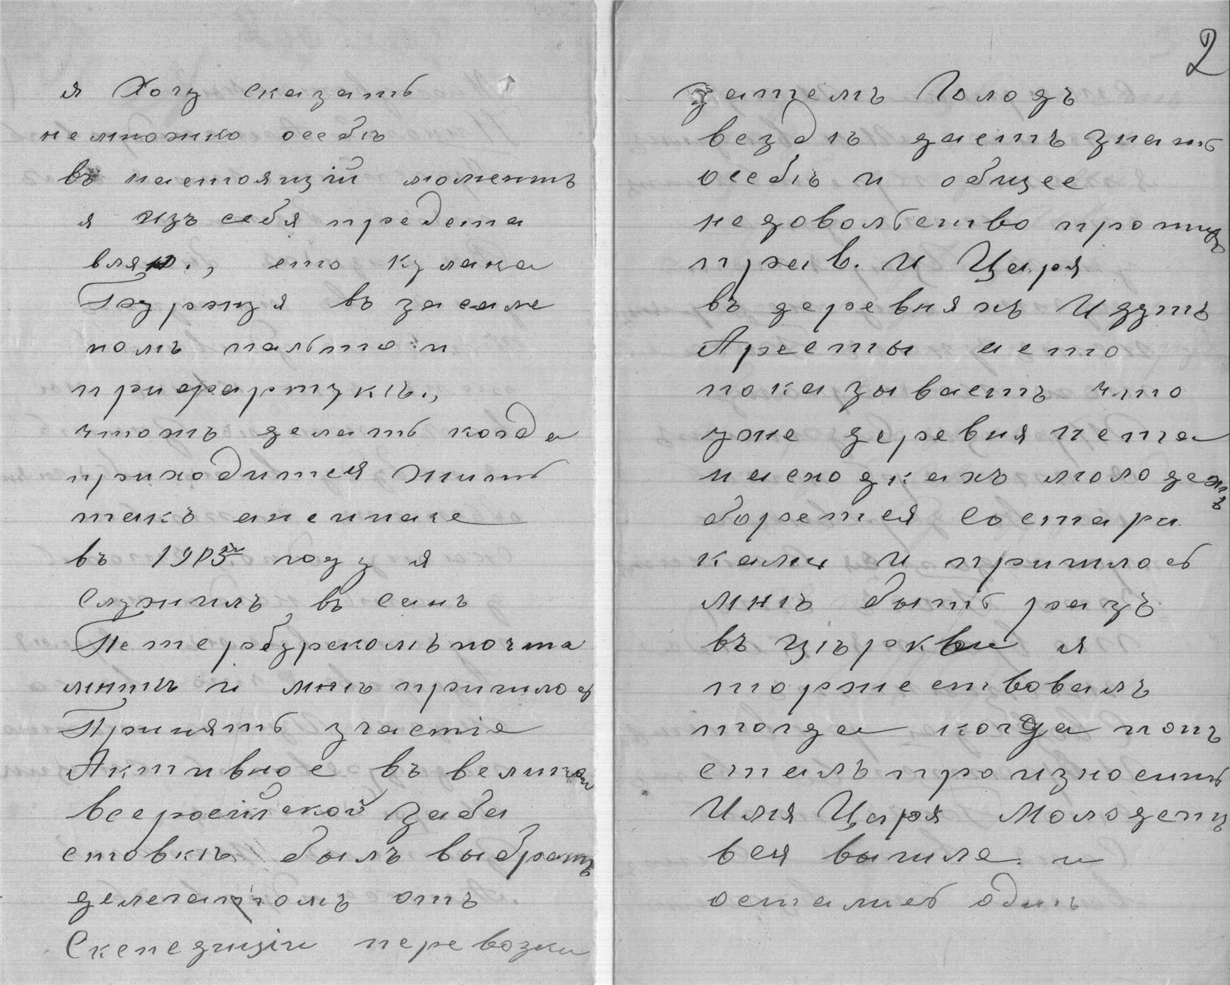 я Хочу сказать
немножко осебѣ
въ настоящій моментъ
я изъ себя предста
вляю., ето кулака
Буржуя въ засале
номъ пальто и
прифартукѣ.,
чтожъ делать когда
приходится жить
такъ анеиначе
въ 1905 году я
Служилъ въ Санъ
Петербурскомъ почта
мнтѣ и мнѣ пришлос
Принять участіе
Активное въ великой
Всеросійской Заба
стовкѣ былъ выбранъ
делегатомъ отъ
Експедиціи перевозки
2
Затемъ Голодъ
вездѣ даетъ знать
осебѣ и общее
недовольство противъ
прав. и Царя
въ деревняхъ Идутъ
Аресты аето
показываетъ что
уже деревня нета
насходкахъ молодежъ
борется Состари
ками и пришлось
мнѣ быть разъ
въ цѣркви я
торжествовалъ
тогда когда попъ
сталъ произносить
Имя Царя Молодежъ
вся вышла и
остались одинъ